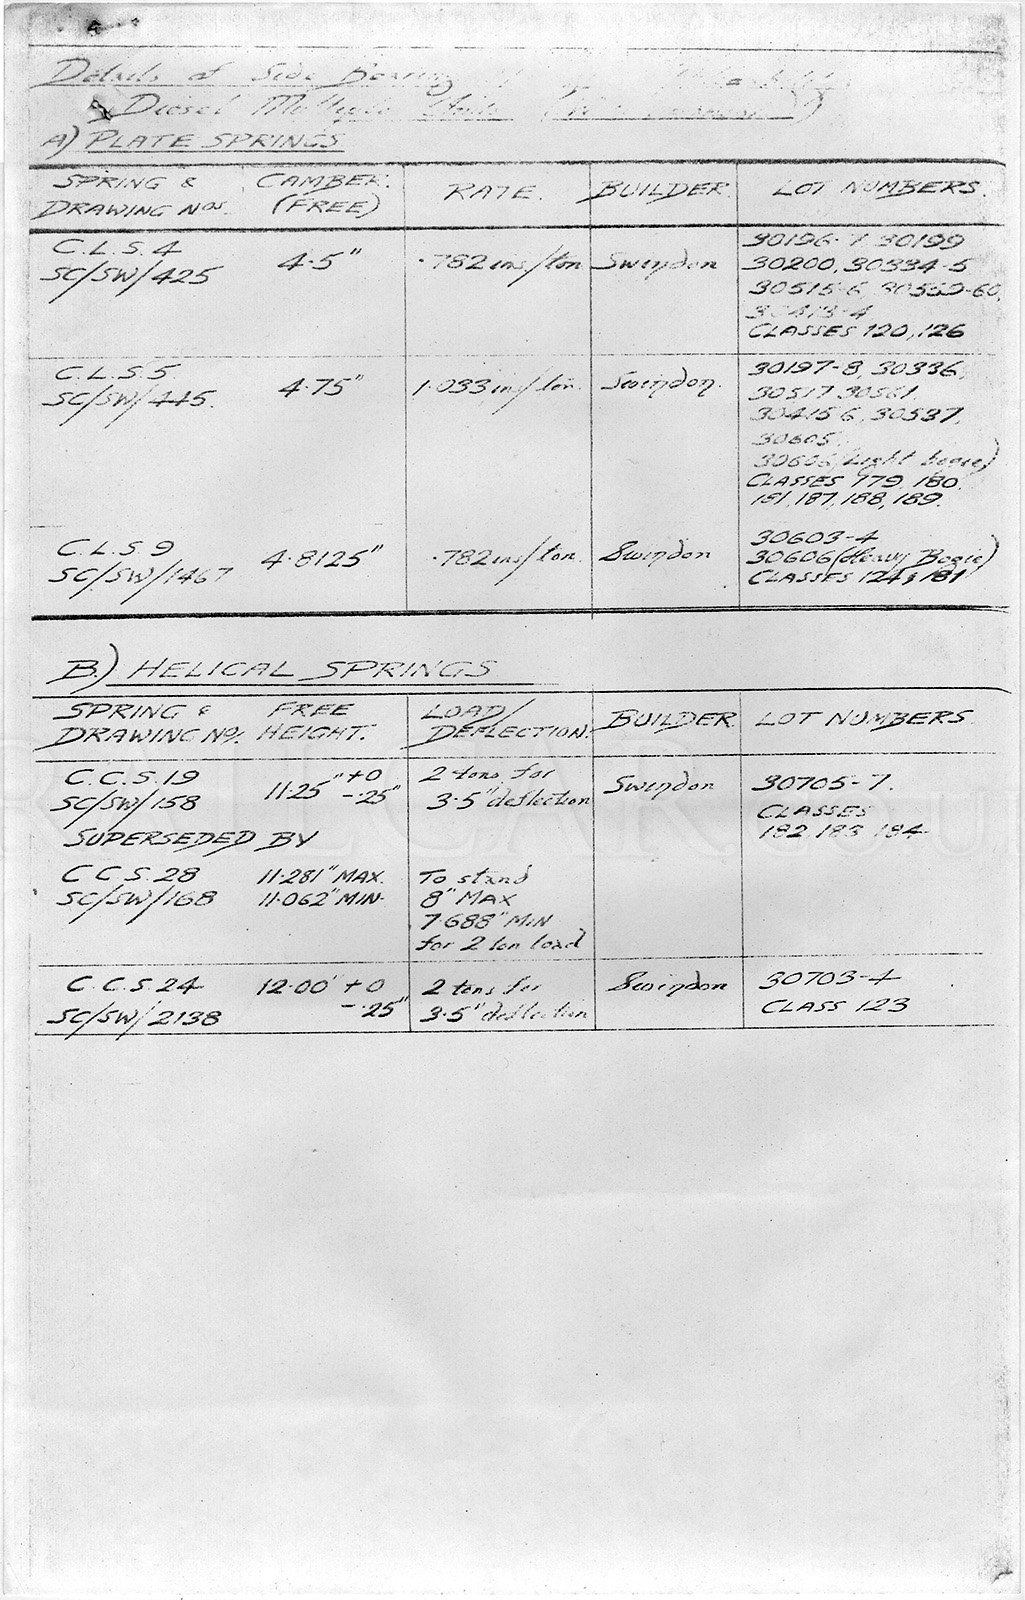 Details of Side Bearing
Diesel Multiple Units
A) PLATE SPRINGS
SPRING & DRAWING Nos. CAMBER. (FREE) RATE. BUILDER LOT NUMBERS.
C.L.S. 4 SC/SW/425 4.5" .782 ins/ton Swindon 30196-7 30199
30200, 30334-5
30515-6, 30559-60,
30413-4
CLASSES 120, 126
C.L.S. 5 SC/SW/445. 4.75" 1.033 ins/ton. Swindon. 30197-8, 30336,
30517 30561,
30415-6, 30537,
30605.
30606 (Light bogie)
CLASSES 179, 180.
181, 187, 188, 189.
C.L.S. 9 SC/SW/1467 4.8125" .782 ins/ton. Swindon 30603-4
30606 (Heavy Bogie)
CLASSES 124, 181
B.) HELICAL SPRINGS
SPRING & DRAWING No/. FREE HEIGHT. LOAD/ DEFLECTION. BUILDER LOT NUMBERS
C.C.S. 19 SC/SW/158 11.25" +0 -.25" 2 tons for 3.5" deflection Swindon 30705-7.
CLASSES
182, 183, 184.
SUPERSEDED BY
C C S. 28 SC/SW/168 11.281" MAX. 11.062" MIN. To stand
8" MAX
7.688" MIN
for 2 ton load
C.C.S. 24 SC/SW/2138 12.00" +0 -.25" 2 tons for 3.5" deflection Swindon 30703-4
CLASS 123